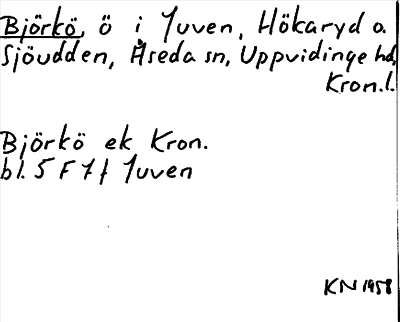 Björkö, ö i Juven, Hökaryd o.
Sjöudden, Åseda sn, Uppvidinge hd,
Kron.l.
Björkö ek Kron.
bl. 5 F 7 f Juven
KN 1958